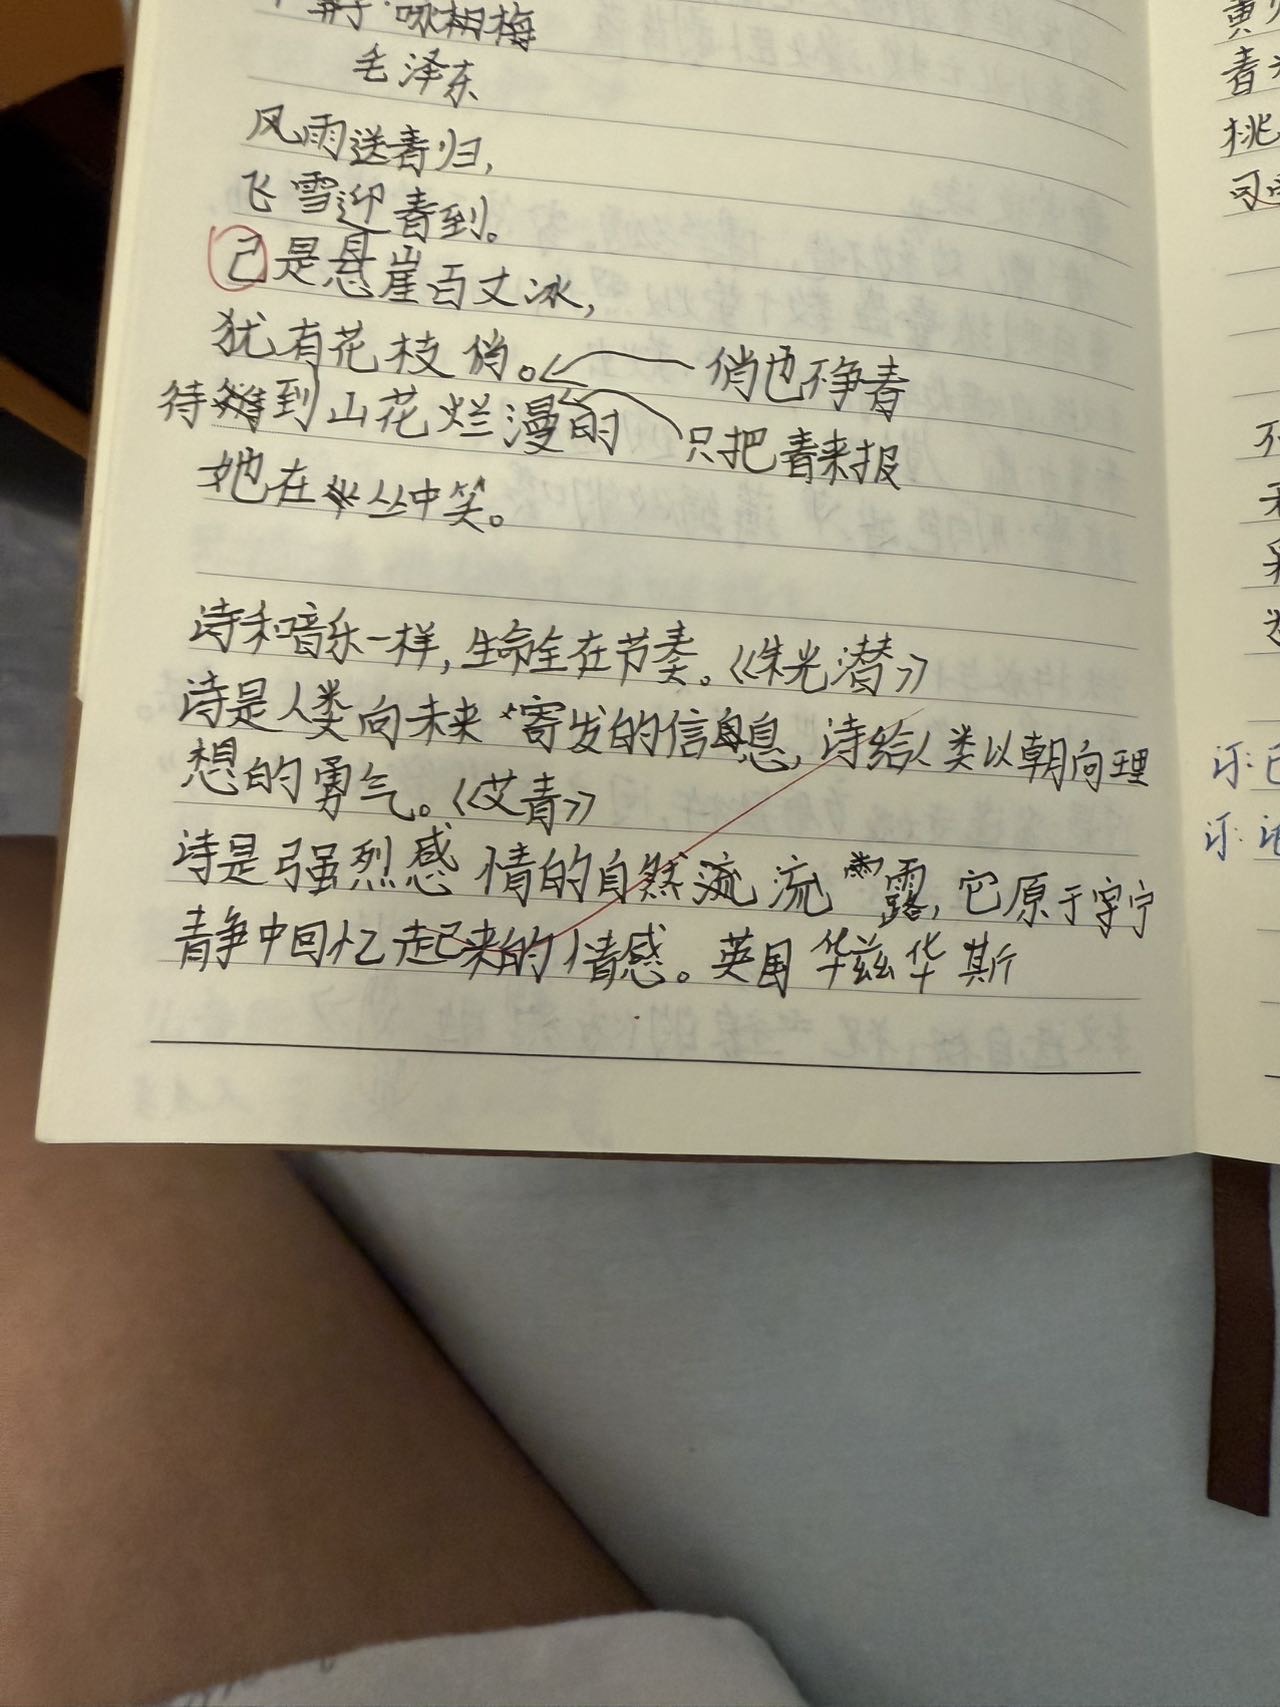 咏梅
毛泽东
风雨送春归,
飞雪迎春到。
己是悬崖百丈冰,
犹有花枝俏。
俏也不争春
待到山花烂漫的
只把春来报
她在丛中笑。
诗和音乐一样,生命全在节奏。《朱光潜》
诗是人类向未来寄发的信息,诗给人类以朝向理
想的勇气。《艾青》
诗是强烈感情的自然流流露,它原于宇宁
静中回忆起来的情感。英国华兹华斯